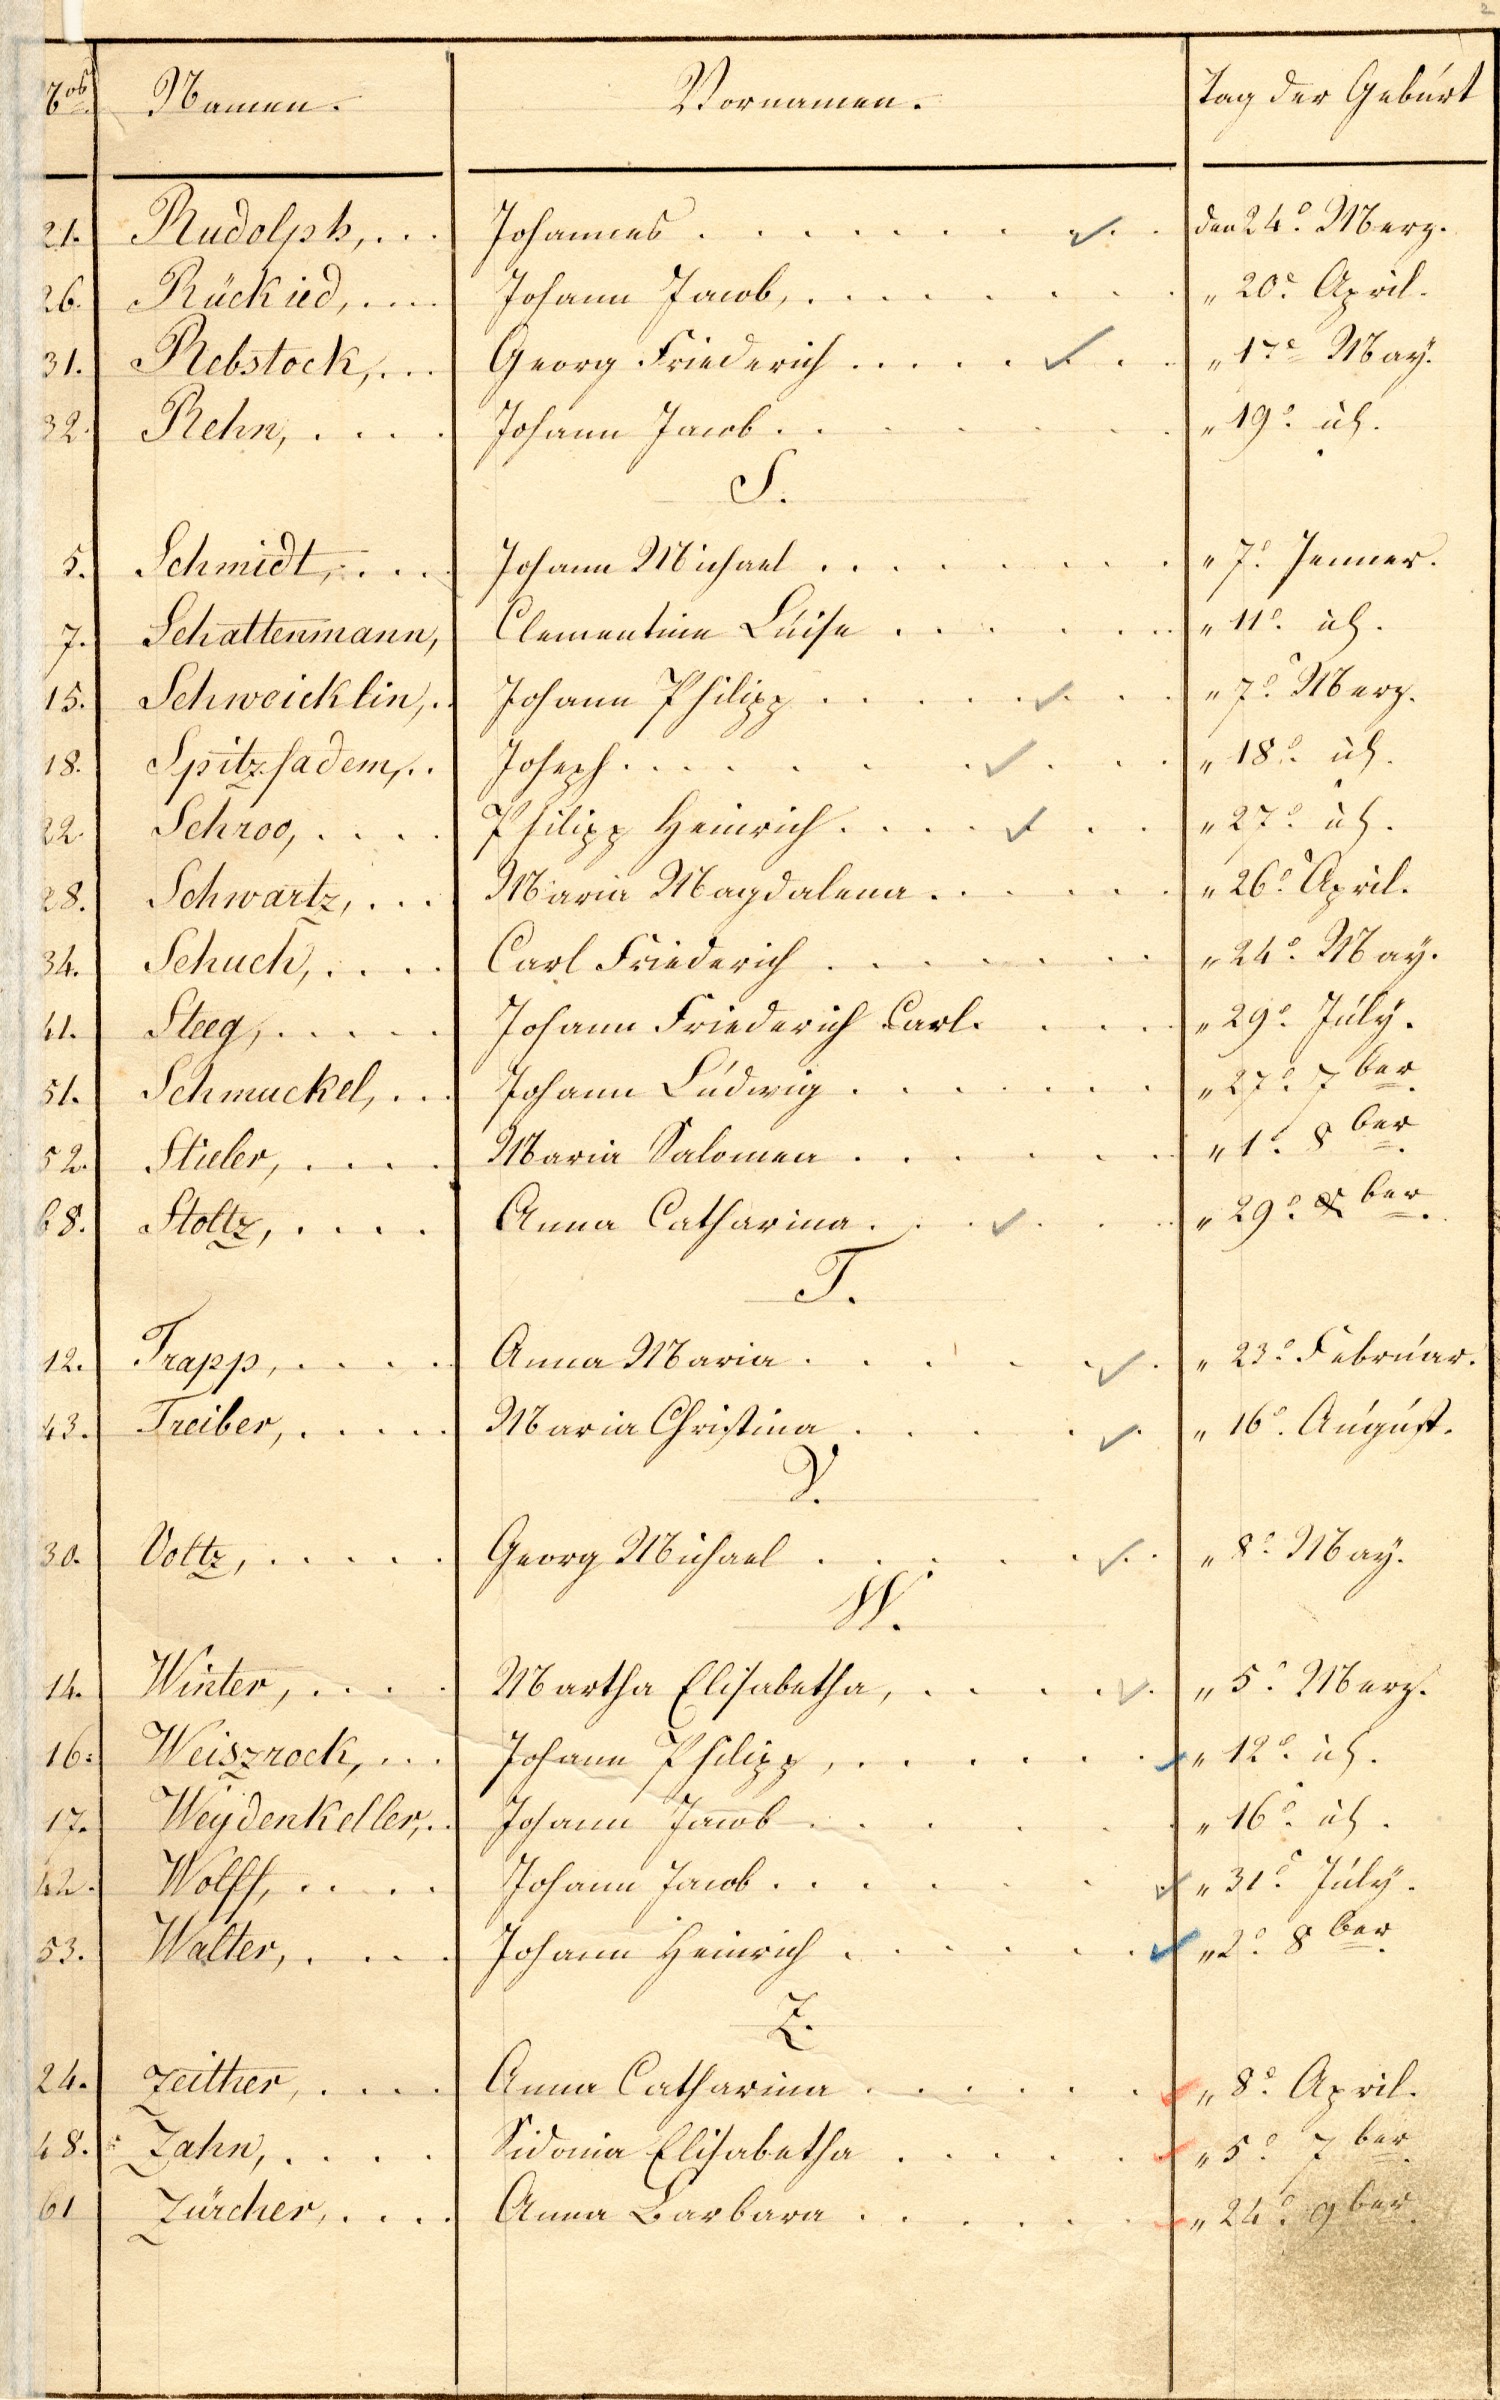 Nos. Namen. Vornamen. Tag der Geburt
21. Rudolph, . . . Johannes . . . . . . . . . den 24.e Merz.
26. Rückied, . . . . Johann Jacob, . . . . . . . . „ 20.e April.
31. Rebstock, . . . Georg Friederich . . . . . . . „ 17.e May.
32. Rehn, . . . . Johann Jacob . . . . . . . „ 19.e id.
S.
5. Schmidt, . . . . Johann Michael . . . . . . . . „ 7.e Jenner.
7. Schattenmann, Clementine Luise . . . . . . „ 11.e id.
15. Schweicklin, . . Johann Philipp . . . . . . . „ 7.e Merz.
18. Spitzfadem, . . Joseph . . . . . . . . „ 18.e id.
22. Schroo, . . . . Philipp Heinrich . . . . . . . „ 27.e id.
28. Schwartz, . . . Maria Magdalena . . . . . . „ 26.e April.
34. Schuch, . . . . Carl Friederich . . . . . . . „ 24.e May.
41. Steeg, . . . . . Johann Friederich Carl. . . . . „ 29.e July.
51. Schmuckel, . . . Johann Ludwig . . . . . . . „ 27.e 7ber.
52. Stieler, . . . . Maria Salomea . . . . . . . „ 1.e 8ber.
68. Stoltz, . . . . Anna Catharina . . . . . . „ 29.e Xber.
T.
12. Trapp, . . . . Anna Maria . . . . . . . „ 23.e Februar.
43. Treiber, . . . . . Maria Christina . . . . . . „ 16.e August.
V.
30. Voltz, . . . . . Georg Michael . . . . . . . „ 8.e May.
W.
14. Winter, . . . . Martha Elisabetha, . . . . . . „ 5.e Merz.
16. Weiszrock, . . . Johann Philipp, . . . . . . . „ 12.e id.
17. Weydenkeller, . . Johann Jacob . . . . . . „ 16.e id.
42. Wolff, . . . . . Johann Jacob . . . . . . . „ 31.e July.
53. Walter, . . . . Johann Heinrich . . . . . . . „ 2.e 8ber.
Z.
24. Zeither, . . . . Anna Catharina . . . . . . „ 8.e April.
48. Zahn, . . . . Sidonia Elisabetha . . . . . „ 5.e 7ber.
61 Zürcher, . . . . Anna Barbara . . . . . . „ 24.e 9ber.